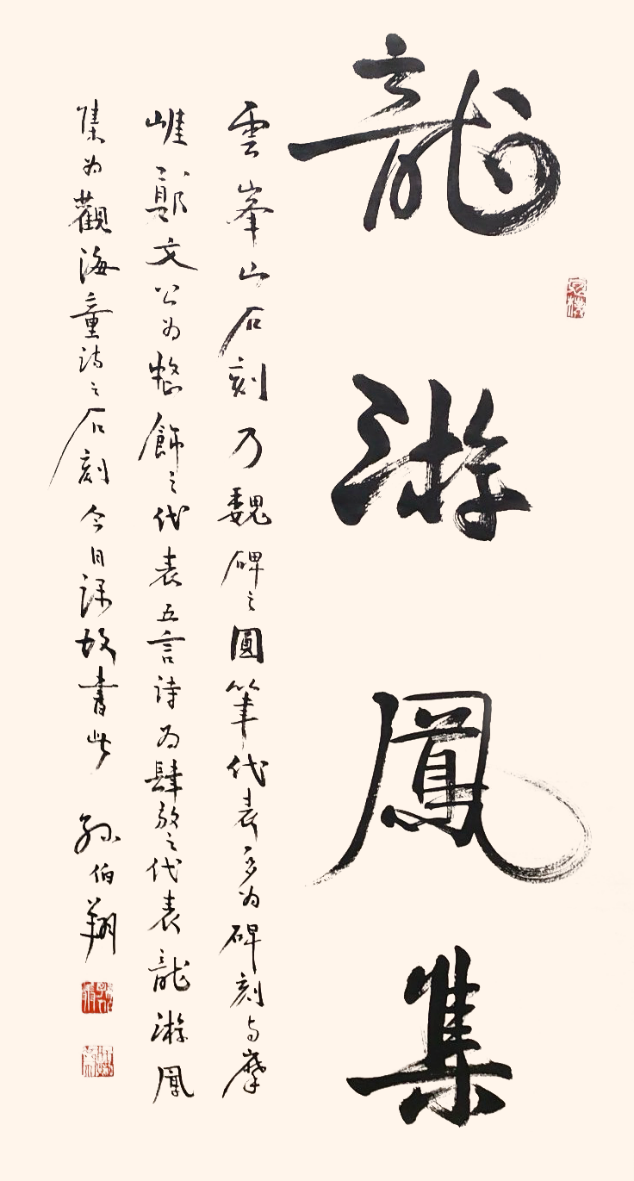 龍游鳳集
雲峯山石刻乃魏碑之圓筆代表多为碑刻与摩
崖鄭文公为整飾之代表五言诗为肆放之代表龍游鳳
集为觀海童诗之石刻今日课故書此 孙伯翔